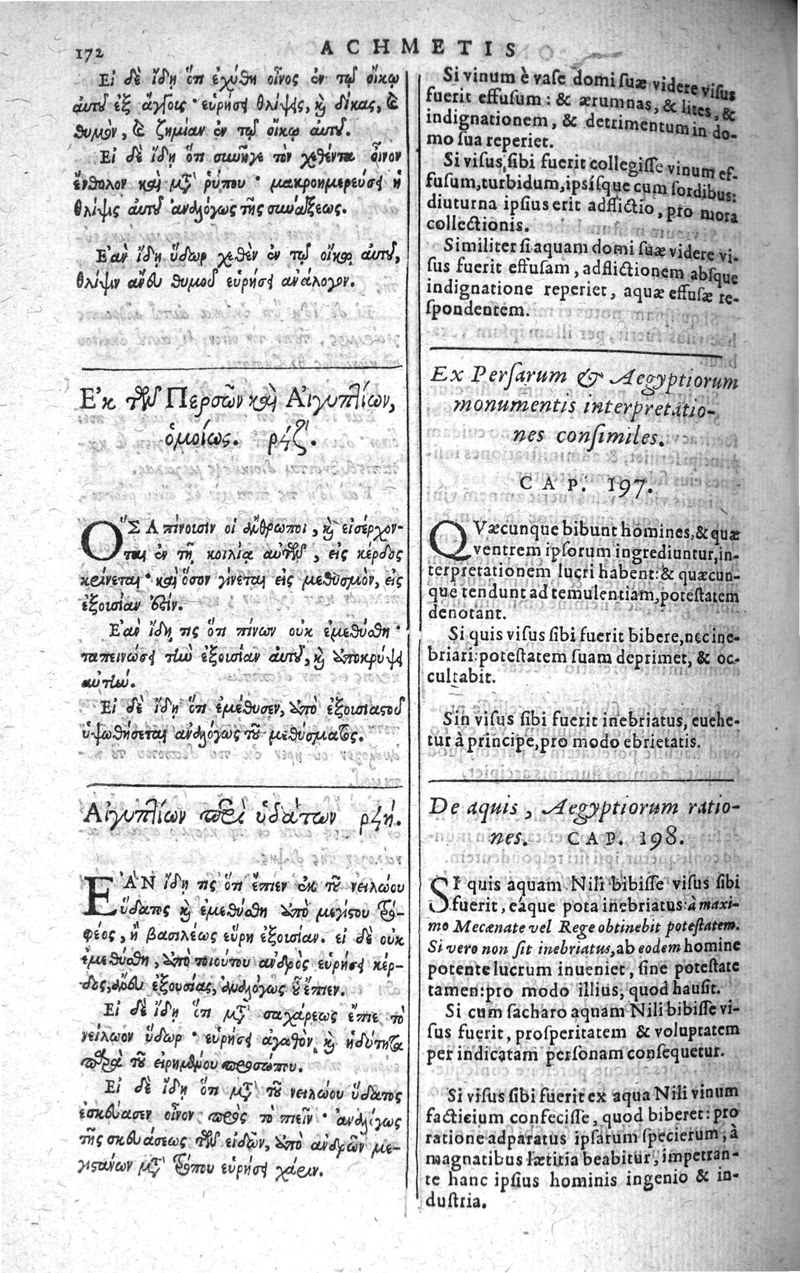 172
ACHMETIS
Εἰ δὲ ἴδῃ ὅτι ἐχύθη οἶνος ἐν τῷ οἴκῳ
αὐτοῦ ἐξ ἄγγους· εὑρήσει θλίψεις, καὶ δίκας, καὶ
θυμὸν, καὶ ζημίαν ἐν τῷ οἴκῳ αὐτοῦ.
Εἰ δὲ ἴδῃ ὅτι συνῆγε τὸν χεθέντα οἶνον
ἔνθολον καὶ μετὰ ῥύπου· μακροημερεύσει ἡ
θλίψις αὐτοῦ ἀναλόγως τῆς συνάξεως.
Ἐὰν ἴδῃ ὕδωρ χεθὲν ἐν τῷ οἴκῳ αὐτοῦ,
θλίψιν ἄνευ θυμοῦ εὑρήσει ἀνάλογον.
Ἐκ τῶν Περσῶν καὶ Αἰγυπτίων,
ὁμοίως. ρϟζʹ.
ὍΣΑ πίνουσιν οἱ ἄνθρωποι, καὶ εἰσέρχον-
ται ἐν τῇ κοιλίᾳ αὐτῶν, εἰς κέρδος
κρίνεται· καὶ ὅσον γίνεται εἰς μεθυσμὸν, εἰς
ἐξουσίαν ἐστίν.
Ἐὰν ἴδῃ τις ὅτι πίνων οὐκ ἐμεθύσθη·
ταπεινώσει τὴν ἐξουσίαν αὐτοῦ, καὶ ὑποκρύψει
αὐτήν.
Εἰ δὲ ἴδῃ ὅτι ἐμέθυσεν, ὑπὸ ἐξουσιαστοῦ
ὑψωθήσεται ἀναλόγως τοῦ μεθύσματος.
Αἰγυπτίων περὶ ὑδάτων ρϟηʹ.
ἘΑΝ ἴδῃ τις ὅτι ἔπιεν ἐκ τοῦ νειλώου
ὕδατος καὶ ἐμεθύσθη ὑπὸ μεγίστου
φέος, ἢ βασιλέως εὕρῃ ἐξουσίαν. εἰ δὲ οὐκ
ἐμεθύσθη, ὑπὸ τοιούτου ἀνδρὸς εὑρήσει κέρ-
δος, ἄνευ ἐξουσίας, ἀναλόγως οὗ ἔπιεν.
Εἰ δὲ ἴδῃ ὅτι μετὰ σαχάρεως ἔπιε τὸ
νείλωον ὕδωρ· εὑρήσει ἀγαθὸν καὶ ἡδύτητα
παρὰ τοῦ εἰρημένου προσώπου.
Εἰ δὲ ἴδῃ ὅτι μετὰ τοῦ νειλώου ὕδατος
ἐσκεύασεν οἶνον πρὸς τὸ πιεῖν· ἀναλόγως
τῆς σκευάσεως τῶν εἰδῶν, ὑπὸ ἀνδρῶν με-
γιστάνων μετὰ τρόπου εὑρήσει χάριν.
Si vinum è vase domi suæ videre visus
fuerit effusum: & ærumnas, & lites, &
indignationem, & detrimentum in do-
mo sua reperiet.
Si visus sibi fuerit collegisse vinum ef-
fusum, turbidum, ipsisque cum sordibus:
diuturna ipsius erit adflictio, pro mora
collectionis.
Similiter si aquam domi suæ videre vi-
sus fuerit effusam, adflictionem absque
indignatione reperiet, aquæ effusæ re-
spondentem.
Ex Persarum & Aegyptiorum
monumentis interpretatio-
nes consimiles.
CAP. 197.
QVæcunque bibunt homines, & quæ
ventrem ipsorum ingrediuntur, in-
terpretationem lucri habent: & quæcun-
que tendunt ad temulentiam, potestatem
denotant.
Si quis visus sibi fuerit bibere, nec ine-
briari: potestatem suam deprimet, & oc-
cultabit.
Sin visus sibi fuerit inebriatus, euehe-
tur à principe, pro modo ebrietatis.
De aquis, Aegyptiorum ratio-
nes. CAP. 198.
SI quis aquam Nili bibisse visus sibi
fuerit, eáque pota inebriatus: à maxi-
mo Mecænate vel Rege obtinebit potestatem.
Si vero non sit inebriatus, ab eodem homine
potente lucrum inueniet, sine potestate
tamen: pro modo illius, quod hausit.
Si cum sacharo aquam Nili bibisse vi-
sus fuerit, prosperitatem & voluptatem
per indicatam personam consequetur.
Si visus sibi fuerit ex aqua Nili vinum
facticium confecisse, quod biberet: pro
ratione adparatus ipsarum specierum, à
magnatibus lætitia beabitur, impetran-
te hanc ipsius hominis ingenio & in-
dustria.